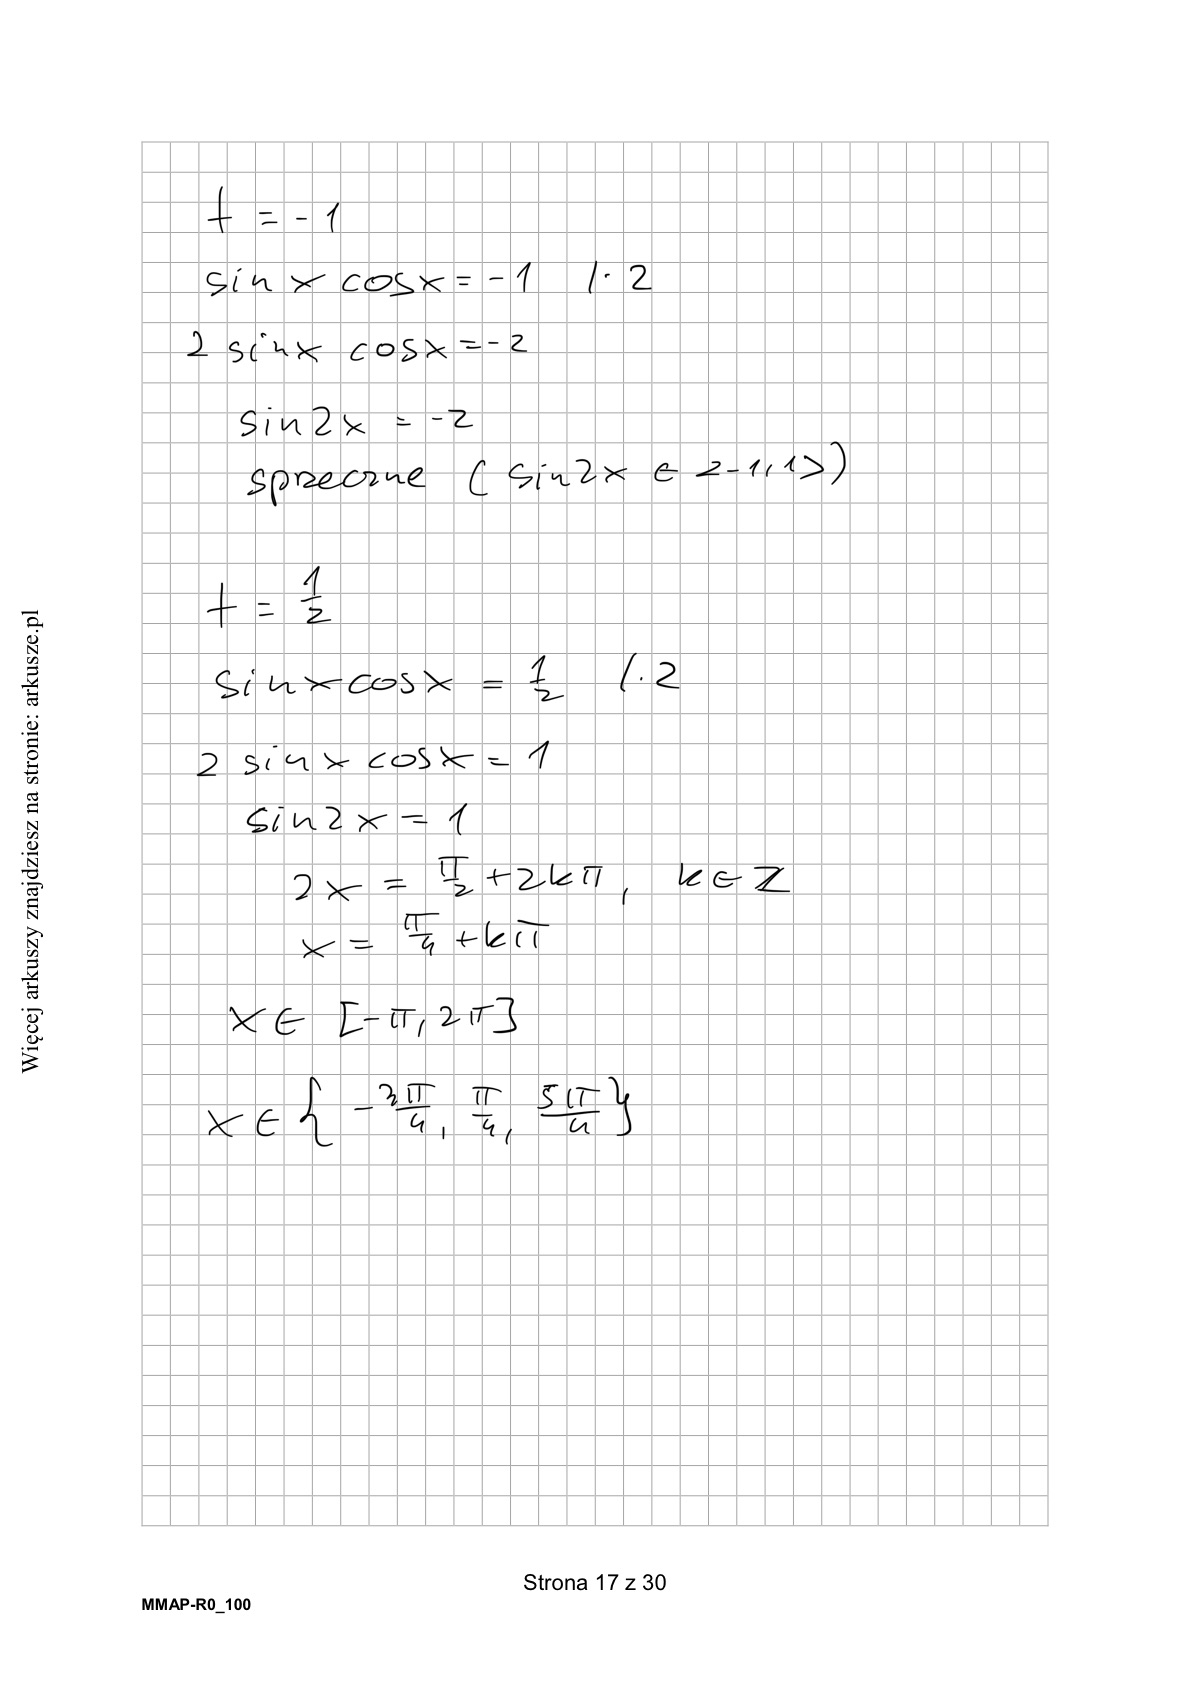 t = -1
sin x cos x = -1 /· 2
2 sin x cos x = -2
sin 2x = -2
sprzeczne ( sin 2x ∈ <-1, 1> )
t = 1/2
sin x cos x = 1/2 /· 2
2 sin x cos x = 1
sin 2x = 1
2x = π/2 + 2kπ, k ∈ Z
x = π/4 + kπ
x ∈ [-π, 2π]
x ∈ { -3π/4, π/4, 5π/4 }
Więcej arkuszy znajdziesz na stronie: arkusze.pl
Strona 17 z 30
MMAP-R0_100